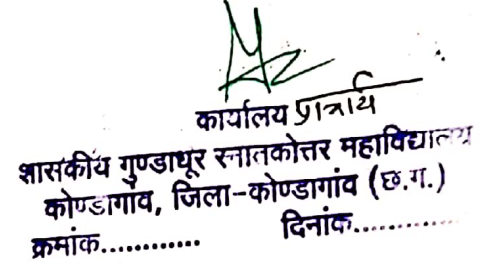 कार्यालय प्राचार्य
शासकीय गुण्डाधूर स्नातकोत्तर महाविद्यालय
कोण्डागांव, जिला-कोण्डागांव (छ.ग.)
क्रमांक............ दिनांक............